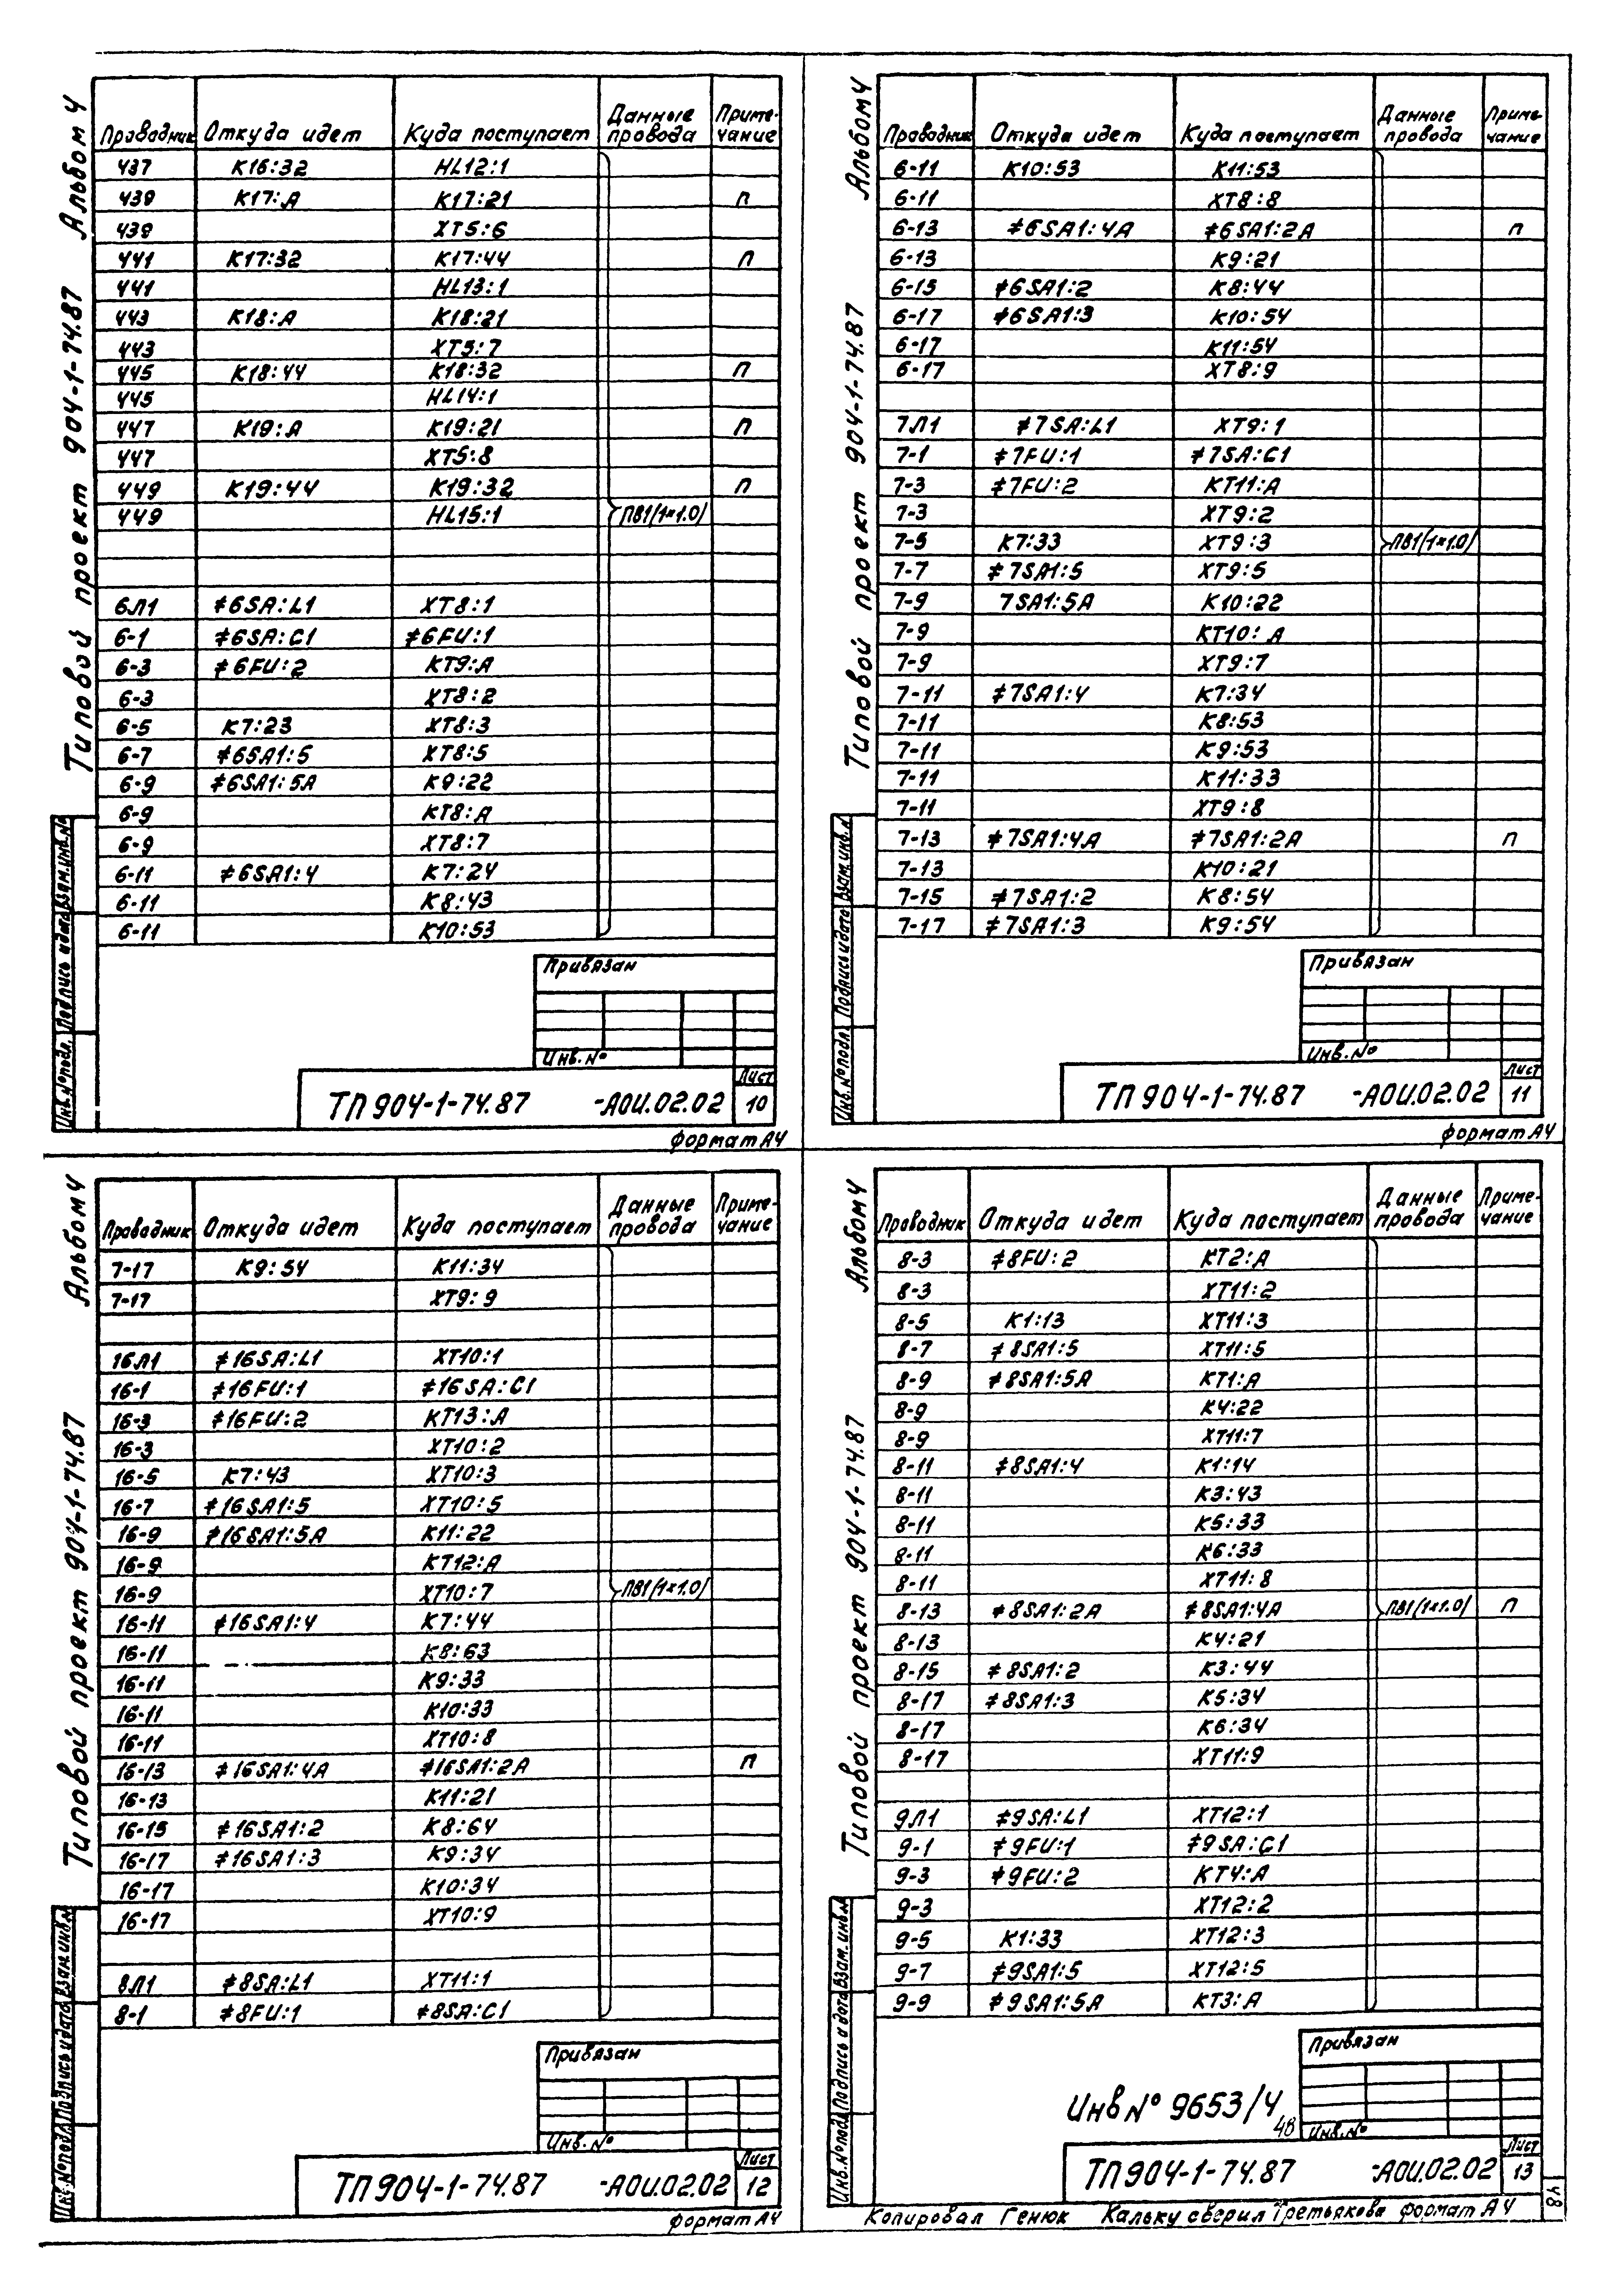 Альбом 4
Типовой проект 904-1-74.87
Проводник Откуда идет Куда поступает Данные провода Примечание
437 К16:32 HL12:1
439 К17:А К17:21 п
439 ХТ5:6
441 К17:32 К17:44 п
441 HL13:1
443 К18:А К18:21
443 ХТ5:7
445 К18:44 К18:32 п
445 HL14:1
447 К19:А К19:21 п
447 ХТ5:8
449 К19:44 К19:32 п
449 HL15:1 ПВ1(1×1.0)
6Л1 ≠6SA:L1 ХТ8:1
6-1 ≠6SA:C1 ≠6FU:1
6-3 ≠6FU:2 КТ9:А
6-3 ХТ8:2
6-5 К7:23 ХТ8:3
6-7 ≠6SA1:5 ХТ8:5
6-9 ≠6SA1:5A К9:22
6-9 КТ8:А
6-9 ХТ8:7
6-11 ≠6SA1:4 К7:24
6-11 К8:43
6-11 К10:53
Привязан
Инв.№
Инв.№подл. Подпись и дата Взам.инв.№
ТП 904-1-74.87 -АОИ.02.02 Лист 10
формат А4
Альбом 4
Типовой проект 904-1-74.87
Проводник Откуда идет Куда поступает Данные провода Примечание
6-11 К10:53 К11:53
6-11 ХТ8:8
6-13 ≠6SA1:4A ≠6SA1:2A п
6-13 К9:21
6-15 ≠6SA1:2 К8:44
6-17 ≠6SA1:3 К10:54
6-17 К11:54
6-17 ХТ8:9
7Л1 ≠7SA:L1 ХТ9:1
7-1 ≠7FU:1 ≠7SA:C1
7-3 ≠7FU:2 КТ11:А
7-3 ХТ9:2
7-5 К7:33 ХТ9:3 ПВ1(1×1.0)
7-7 ≠7SA1:5 ХТ9:5
7-9 7SA1:5A К10:22
7-9 КТ10:А
7-9 ХТ9:7
7-11 ≠7SA1:4 К7:34
7-11 К8:53
7-11 К9:53
7-11 К11:33
7-11 ХТ9:8
7-13 ≠7SA1:4A ≠7SA1:2A п
7-13 К10:21
7-15 ≠7SA1:2 К8:54
7-17 ≠7SA1:3 К9:54
Привязан
Инв.№
Инв.№подл. Подпись и дата Взам.инв.№
ТП 904-1-74.87 -АОИ.02.02 Лист 11
формат А4
Альбом 4
Типовой проект 904-1-74.87
Проводник Откуда идет Куда поступает Данные провода Примечание
7-17 К9:54 К11:34
7-17 ХТ9:9
16Л1 ≠16SA:L1 ХТ10:1
16-1 ≠16FU:1 ≠16SA:C1
16-3 ≠16FU:2 КТ13:А
16-3 ХТ10:2
16-5 К7:43 ХТ10:3
16-7 ≠16SA1:5 ХТ10:5
16-9 ≠16SA1:5A К11:22
16-9 КТ12:А
16-9 ХТ10:7 ПВ1(1×1.0)
16-11 ≠16SA1:4 К7:44
16-11 К8:63
16-11 К9:33
16-11 К10:33
16-11 ХТ10:8
16-13 ≠16SA1:4A ≠16SA1:2A п
16-13 К11:21
16-15 ≠16SA1:2 К8:64
16-17 ≠16SA1:3 К9:34
16-17 К10:34
16-17 ХТ10:9
8Л1 ≠8SA:L1 ХТ11:1
8-1 ≠8FU:1 ≠8SA:C1
Привязан
Инв.№
Инв.№подл. Подпись и дата Взам.инв.№
ТП 904-1-74.87 -АОИ.02.02 Лист 12
формат А4
Альбом 4
Типовой проект 904-1-74.87
Проводник Откуда идет Куда поступает Данные провода Примечание
8-3 ≠8FU:2 КТ2:А
8-3 ХТ11:2
8-5 К1:13 ХТ11:3
8-7 ≠8SA1:5 ХТ11:5
8-9 ≠8SA1:5A КТ1:А
8-9 К4:22
8-9 ХТ11:7
8-11 ≠8SA1:4 К1:14
8-11 К3:43
8-11 К5:33
8-11 К6:33
8-11 ХТ11:8
8-13 ≠8SA1:2A ≠8SA1:4A ПВ1(1×1.0) п
8-13 К4:21
8-15 ≠8SA1:2 К3:44
8-17 ≠8SA1:3 К5:34
8-17 К6:34
8-17 ХТ11:9
9Л1 ≠9SA:L1 ХТ12:1
9-1 ≠9FU:1 ≠9SA:C1
9-3 ≠9FU:2 КТ4:А
9-3 ХТ12:2
9-5 К1:33 ХТ12:3
9-7 ≠9SA1:5 ХТ12:5
9-9 ≠9SA1:5A КТ3:А
Привязан
Инв № 9653/4
48
Инв.№
Инв.№подл. Подпись и дата Взам.инв.№
ТП 904-1-74.87 -АОИ.02.02 Лист 13
48
Копировал Генюк Кальку сверил Третьякова формат А4